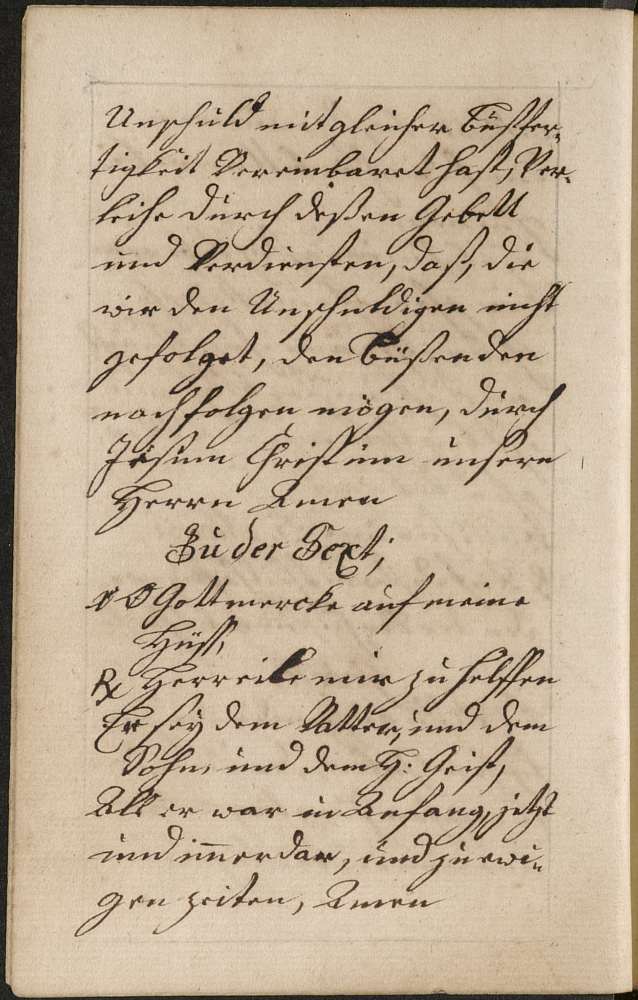 Unschuld mit gleicher Bußfer¬
tigkeit Vereinbaret hast, Ver¬
leihe durch deßen Gebett
und Verdiensten, daß, die
wir den Unschuldigen nicht
gefolget, den büßenden
nachfolgen mögen, durch
Jesum Christum unsern
Herrn Amen
Zu der Sext;
V O Gott mercke auf meine
Hülf,
R Herr eile mir zu helffen
Er sey dem Vatter, und dem
Sohn, und dem H: Geist,
Als er war in Anfang, jetzt
und imerdar, und zu ewi¬
gen zeiten, Amen